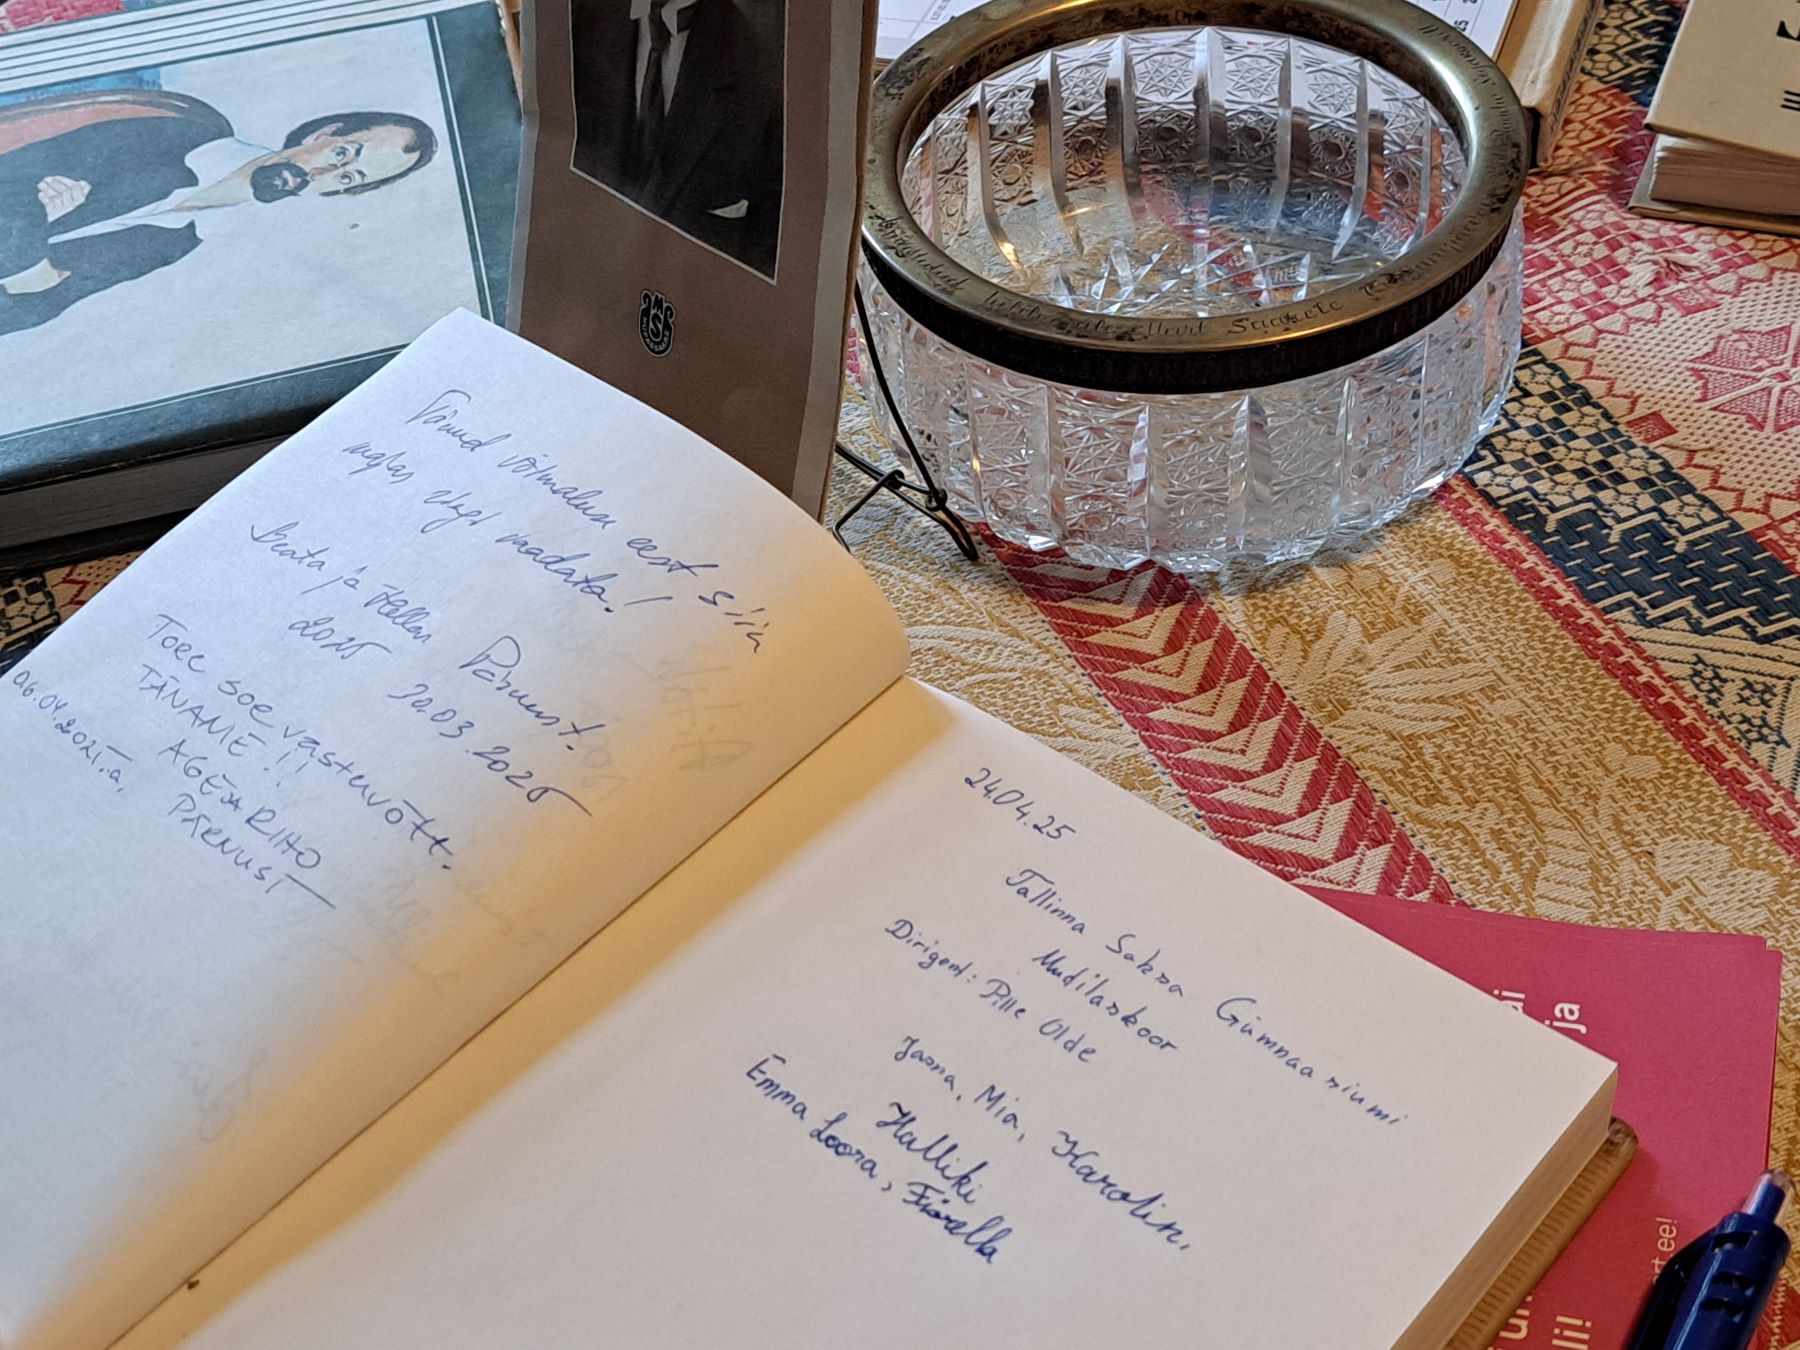 Tänud võimaluse eest siin
majas ringi vaadata!
Beata ja Pärnust.
2025 20.03.2025
TORE SOE VASTUVÕTT.
TÄNAME!!
AGE JA RIHO
06.04.2025.a. PÄRNUST
24.04.25
Tallinna Saksa Gümnaasiumi
Mudilaskoor
Dirigent: Pille Olde
Jaana, Mia, Karolin,
Halliki
Emma Loora, Fiorella
Saarete
ja
ee!